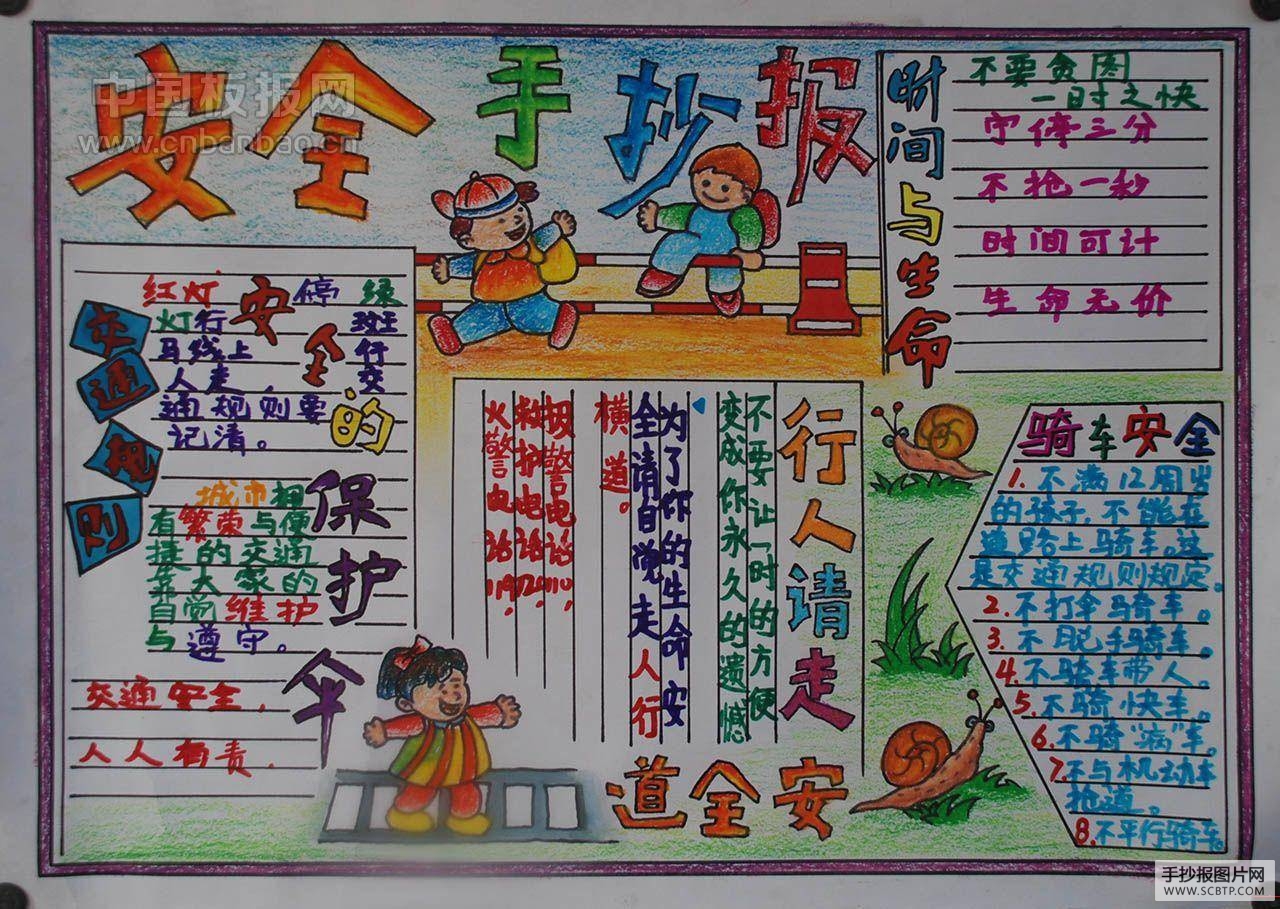 安全手抄报
中国板报网
www.cnbanbao.cn
交通规则
安全的保护伞
红灯停绿
灯行 班
马线上行
人走,交
通规则要
记清。
城市拥
有繁荣与便
捷的交通
靠大家的
自觉维护
与遵守。
交通安全,
人人有责.
时间与生命
不要贪图
一时之快
宁停三分
不抢一秒
时间可计
生命无价
行人请走
安全道
不要让一时的方便
变成你永久的遗憾
为了你的生命安
全请自觉走人行
横道。
报警电话110,
救护电话120,
火警电话119.
骑车安全
1.不满12周岁
的孩子,不能在
道路上骑车。这
是交通规则规定。
2.不打伞骑车。
3.不脱手骑车。
4.不骑车带人。
5.不骑快车。
6.不骑“病”车。
7.不与机动车
抢道。
8.不平行骑车。
手抄报图片网
WWW.SCBTP.COM